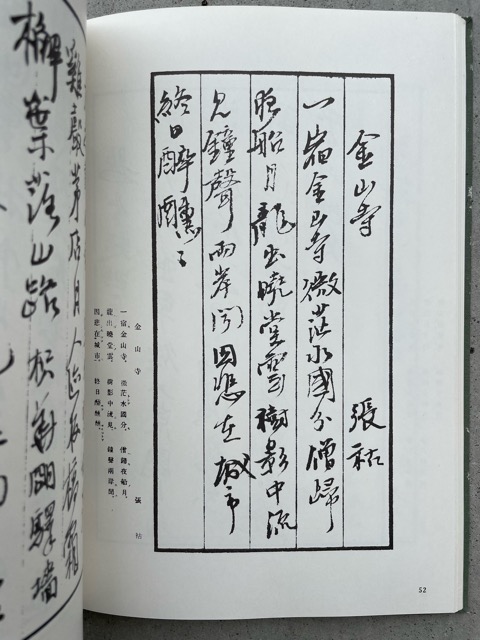 金山寺 張祜
一宿金山寺微茫水國分僧歸
夜船月龍出曉堂雲樹影中流
見鐘聲兩岸聞因悲在城市
終日醉醺々
金山寺 張祜
一宿金山寺、微茫水國分。僧歸夜船月、
龍出曉堂雲。樹影中流見、鐘聲兩岸聞。
因悲在城市、終日醉醺醺。
52
雞聲茅店月人迹板橋霜
槲葉落山路枳花明驛墻